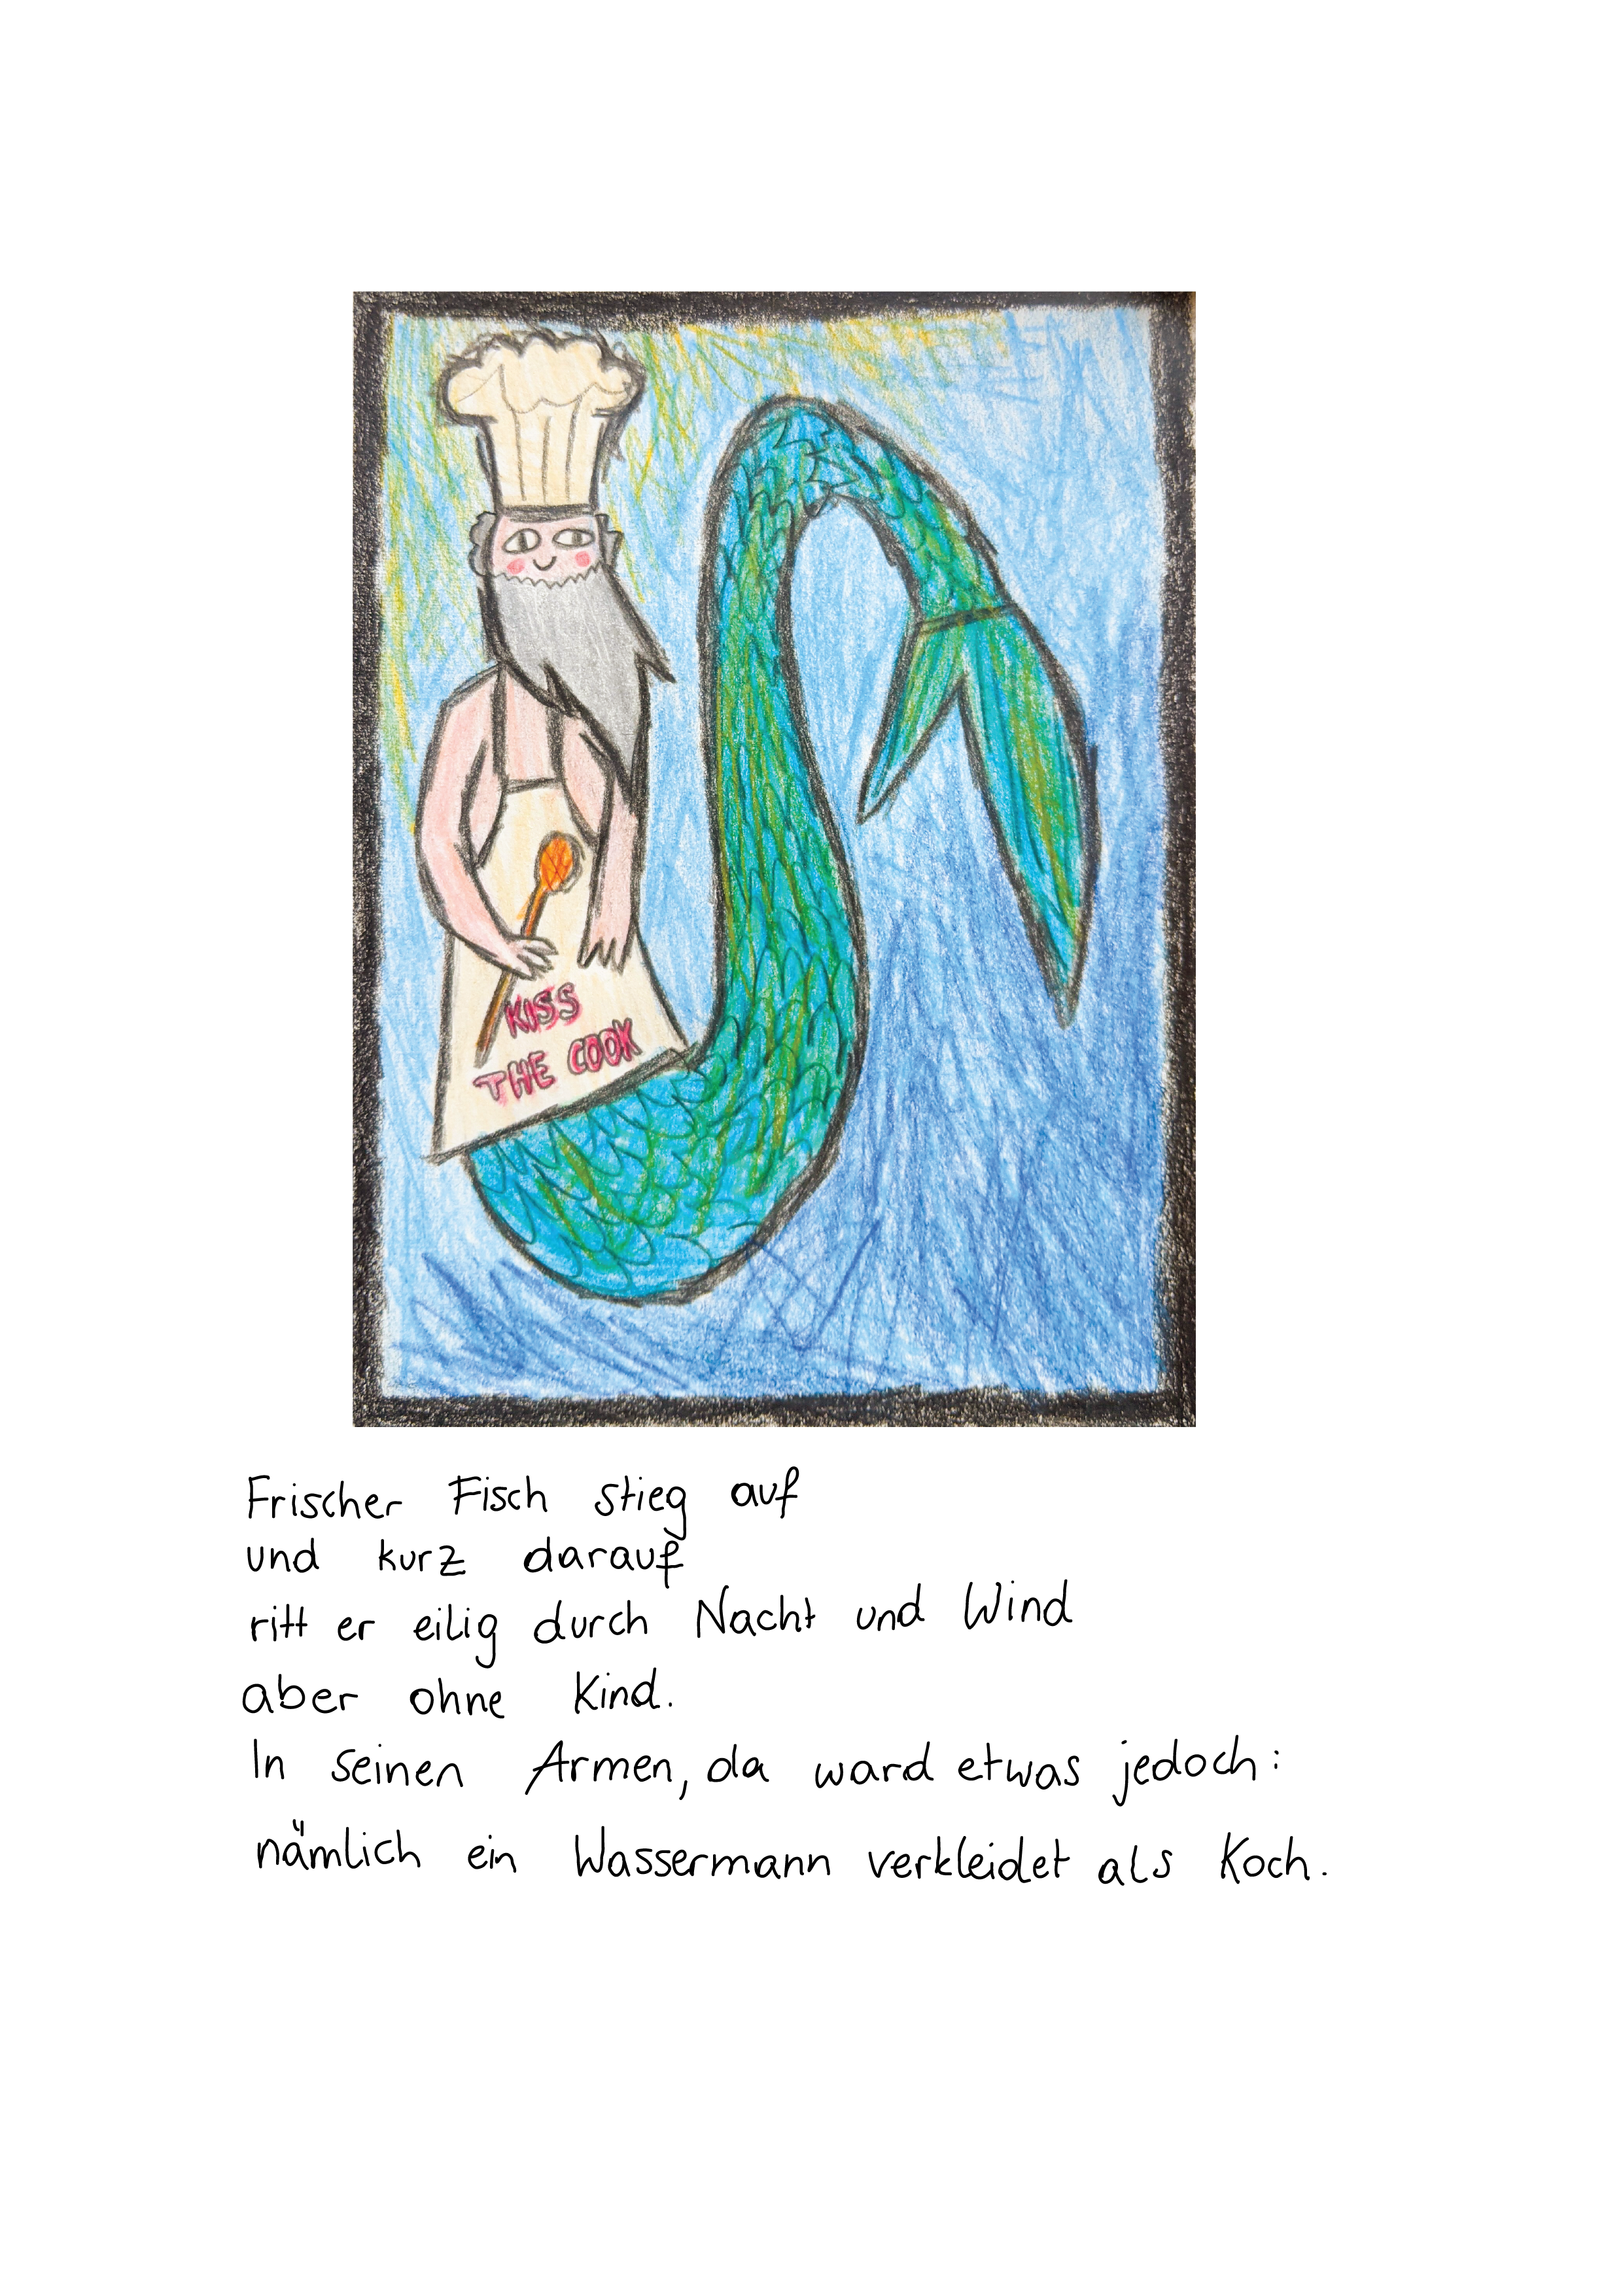 KISS
THE COOK
Frischer Fisch stieg auf
und kurz darauf
ritt er eilig durch Nacht und Wind
aber ohne Kind.
In seinen Armen, da ward etwas jedoch:
nämlich ein Wassermann verkleidet als Koch.